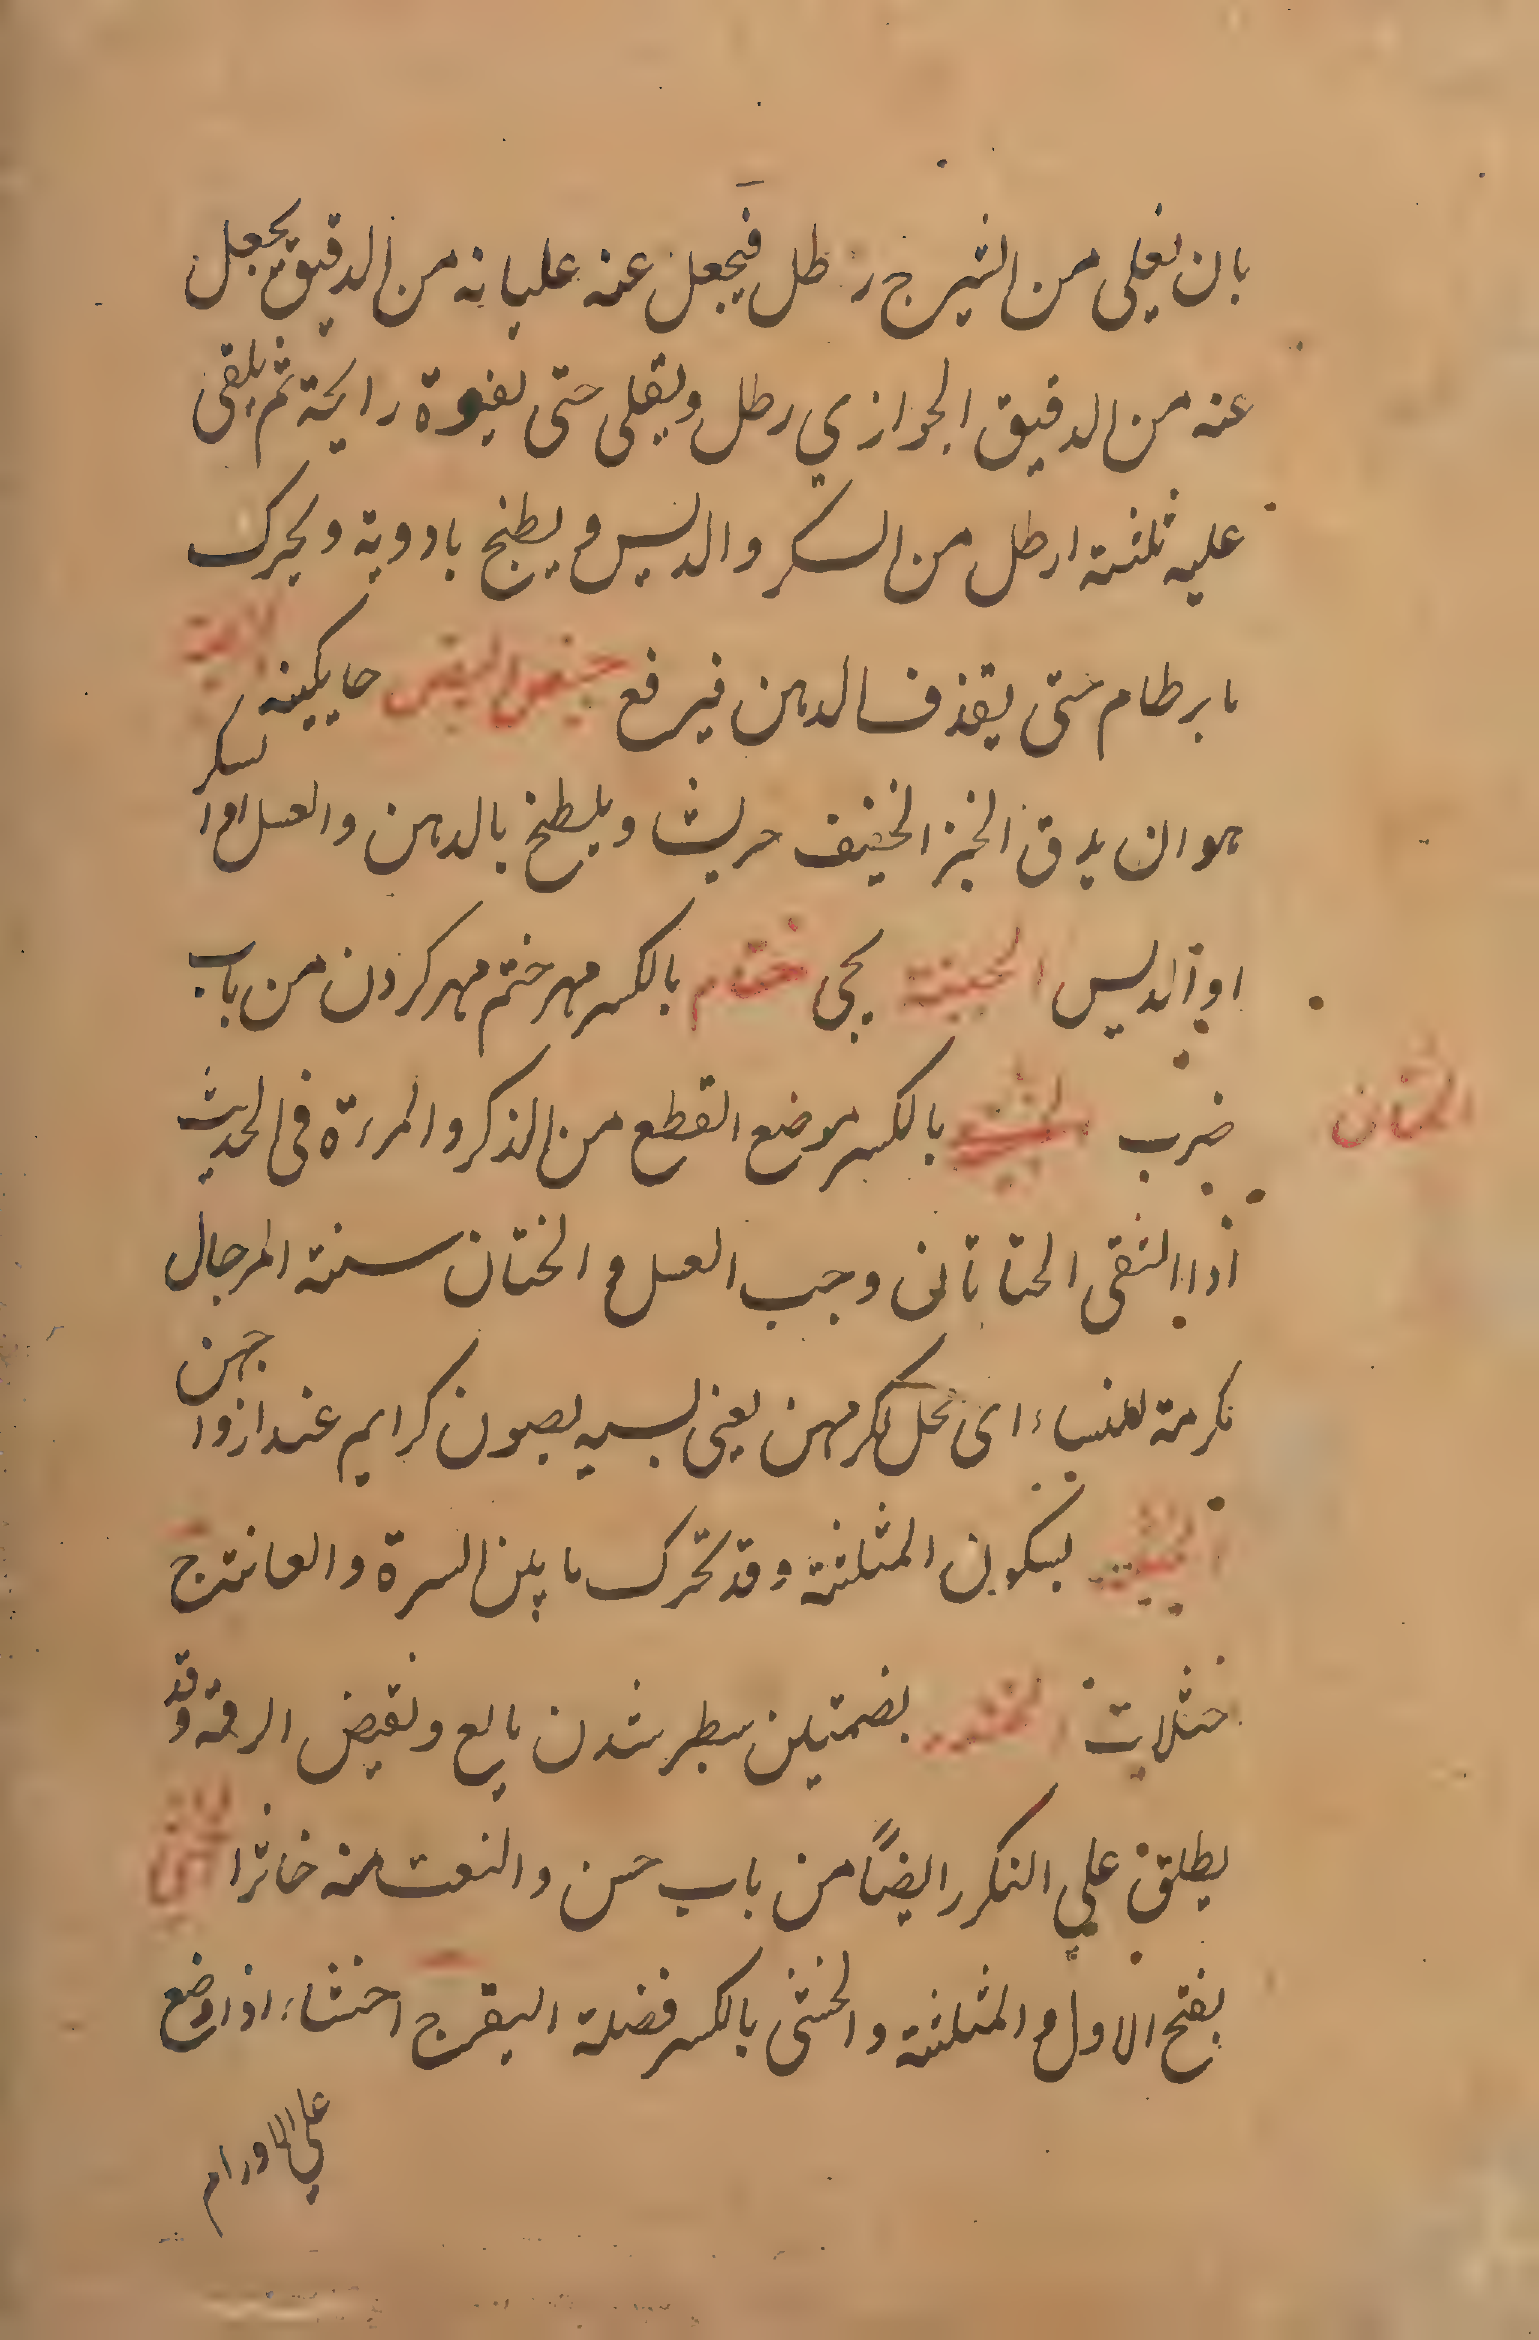 بان يغلى من الشيرج رطل فيجعل عنه عليانه من الدقيق يجعل
عنه من الدقيق الجوازي رطل ويقلى حتى يفوة رايحة ثم يلقى
عليه ثلثة ارطل من السكر والدبس ويطبخ بادوية ويحرك
بابرطام حتى يقذف الدهن فيرفع حايكينه
هو ان يدق الخبز الخفيف حريث ويلطبخ بالدهن والعسل او السكر
او الدبس الخبيثة يجى ختام بالكسر مهر ختم مهر كردن من باب
الختان
ضرب بالكسر موضع القطع من الذكر والمرءة فى الحديث
اذا التقى الختاتانى وجب العسل والختان سنة الرجال
مكرمة للنساء اى محل لكرمهن يعنى لسببه يصيون كرايم عند ازواجهن
بسكون المثلثة وقد تحرك ما بين السرة والعانة ج
خثلات بضمتين سطبر شدن مايع ونقيض الرقة وقد
يطلق علي التكرر ايضًا من باب حسن والنعت منه خاثرا
بفتح الاول والمثلثة والخثى بالكسر فضلة البقر ج اخثاء اذا وضع
علي الاورام